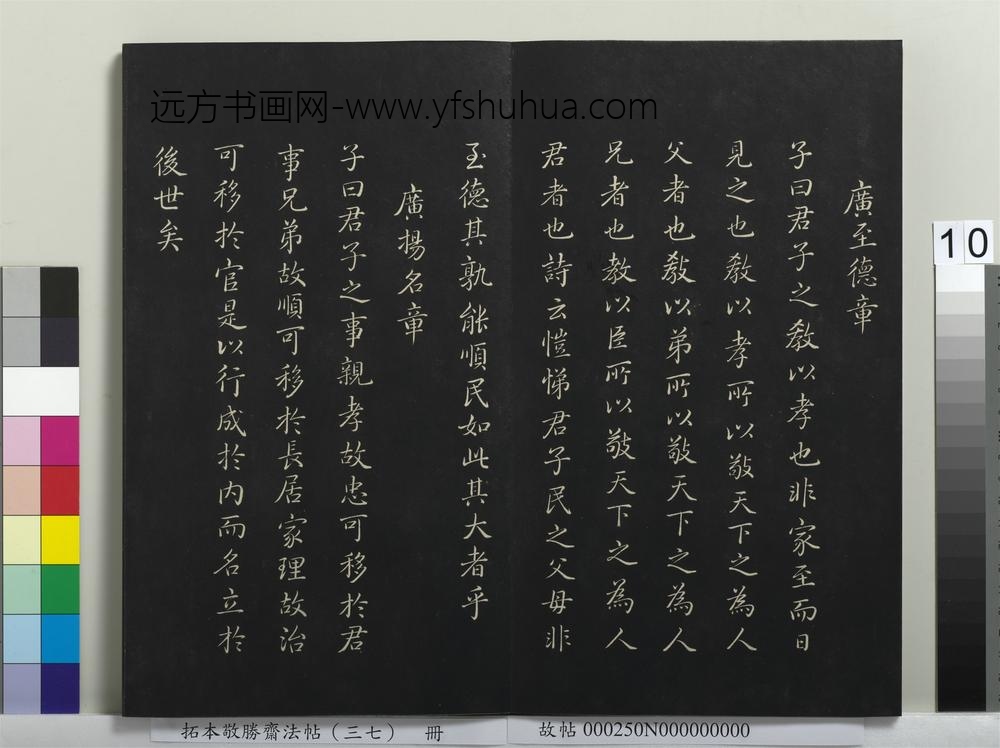 远方书画网-www.yfshuhua.com
廣至德章
子曰君子之教以孝也非家至而日
見之也教以孝所以敬天下之為人
父者也教以弟所以敬天下之為人
兄者也教以臣所以敬天下之為人
君者也詩云愷悌君子民之父母非
至德其孰能順民如此其大者乎
廣揚名章
子曰君子之事親孝故忠可移於君
事兄弟故順可移於長居家理故治
可移於官是以行成於内而名立於
後世矣
10
拓本敬勝齋法帖（三七） 冊
故帖 000250N000000000